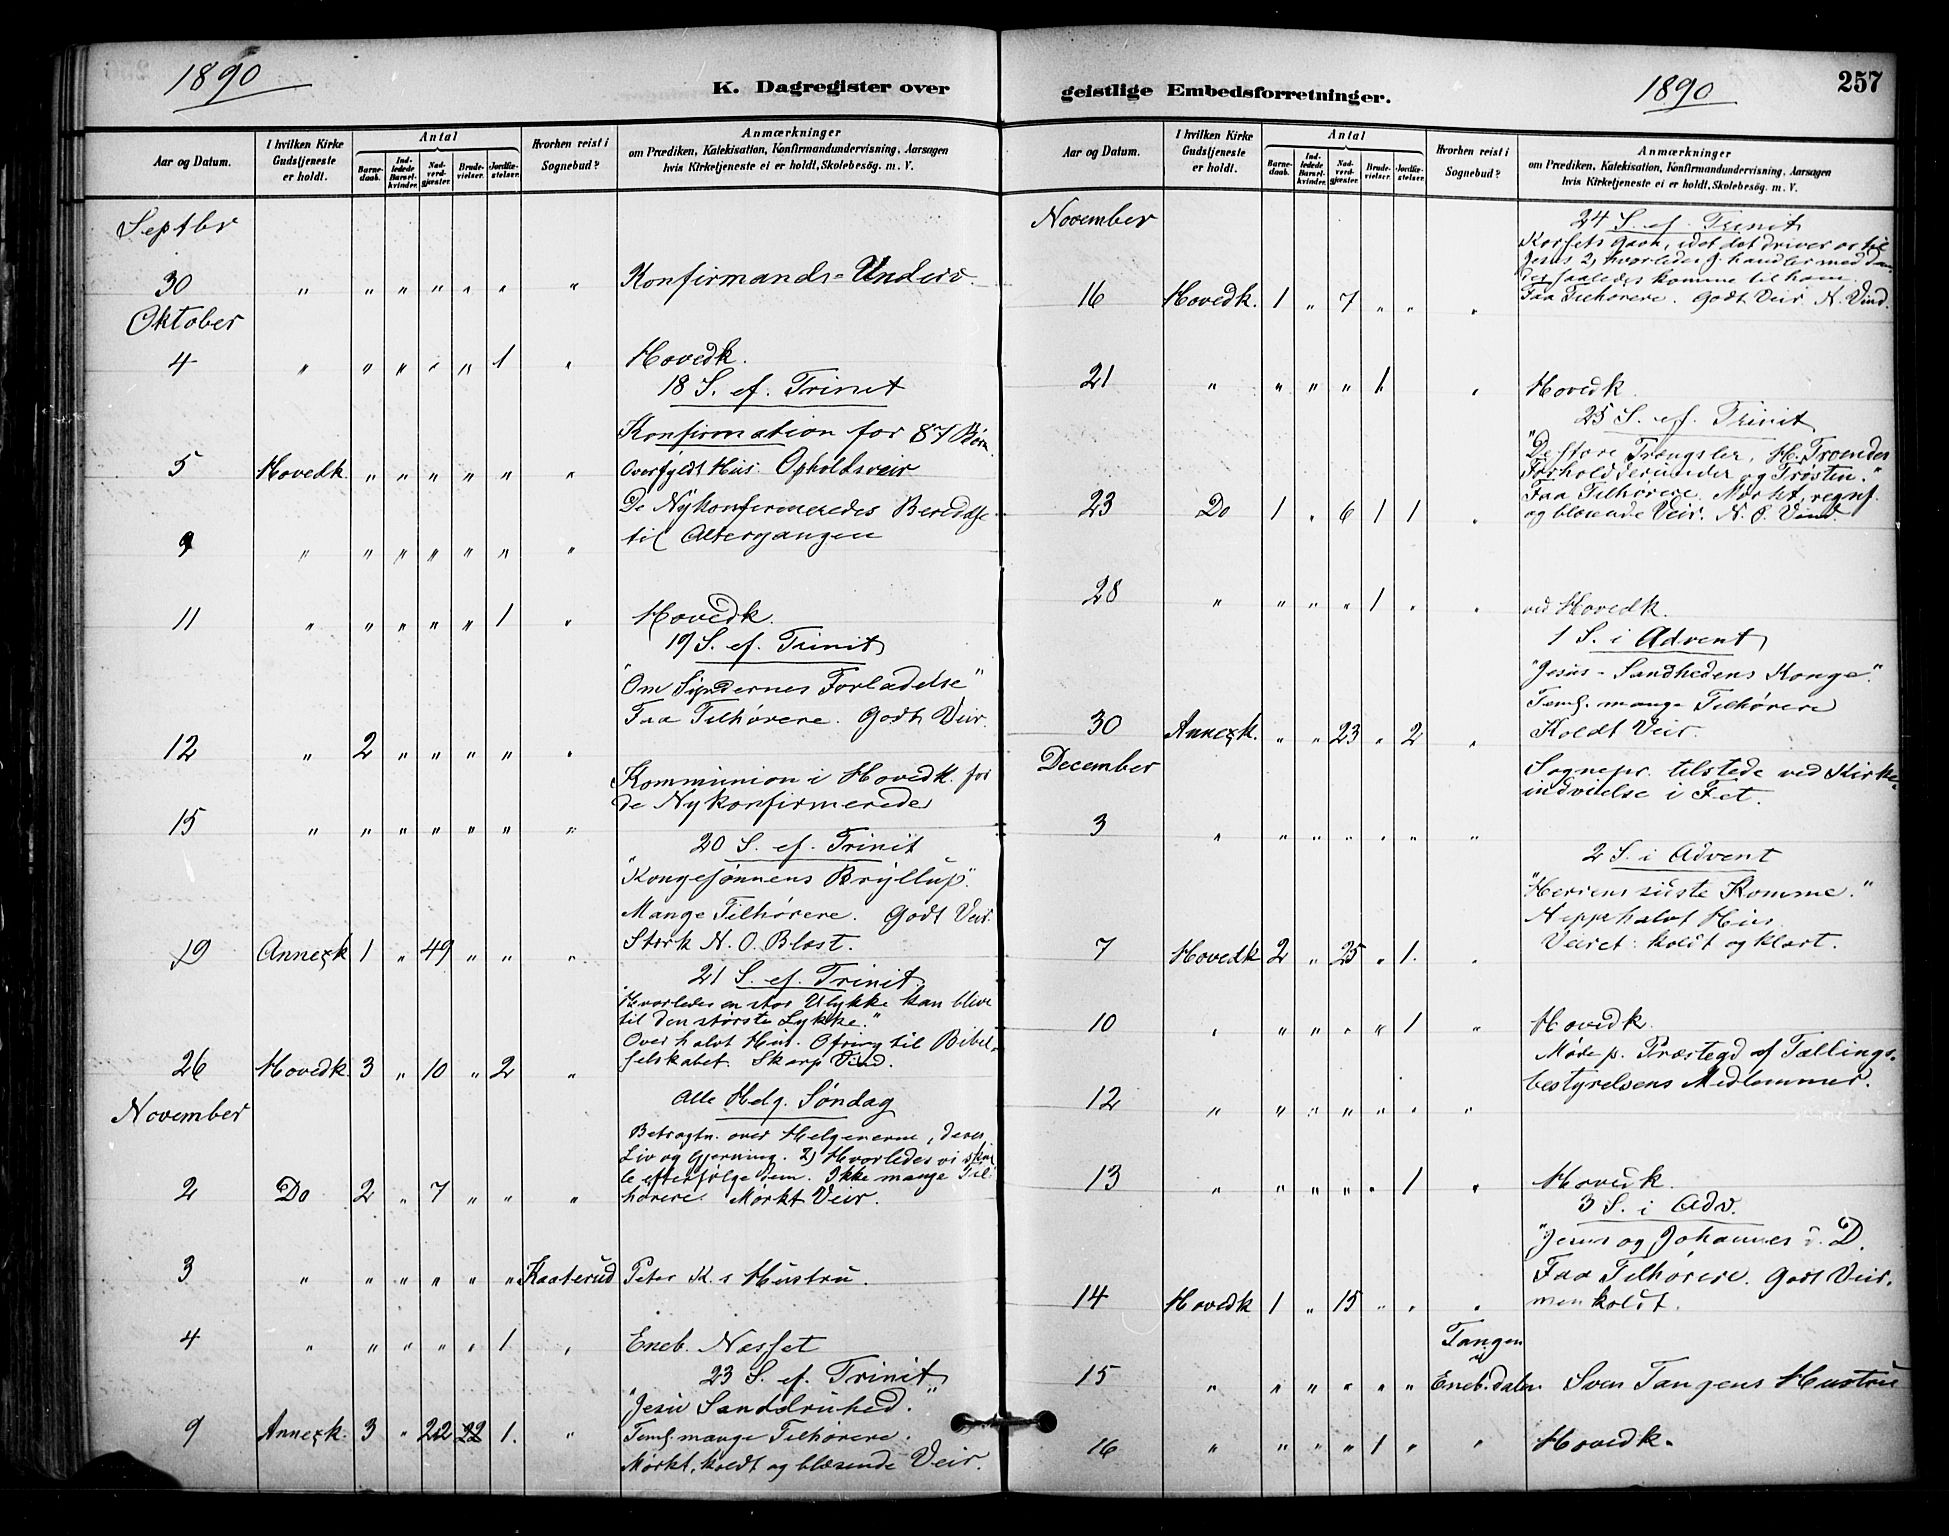 1890
K. Dagregister over
Aar og Datum.
I hvilken Kirke Gudstjeneste er holdt.
Antal
Barnedaab.
Indledede Barselkvinder.
Nadverdgjæster.
Brudevielser.
Jordfæstelser.
Hvorhen reist i Sognebud?
Anmærkninger
om Prædiken, Katekisation, Konfirmandundervisning, Aarsagen
hvis Kirketjeneste ei er holdt, Skolebesøg. m. V.
Septbr
Konfirmands-Underv.
30 " " " " " " "
Oktober
Hovedk.
4 " " " " " 1 "
18 S. ef. Trinit
Konfirmation for 87 Børn
5 Hovedk. " " " " " " Overfyldt Hus. Opholdsveir
De Nykonfirmeredes
til Altergangen
9 " " " " " " "
11 " " " " " 1 " Hovedk.
19 S. ef. Trinit
"Om Syndernes Forladelse"
Faa Tilhørere. Godt Veir.
12 " 2 " " " " "
Kommunion i Hovedk. for
de Nykonfirmerede
15 " " " " " " "
20 S. ef. Trinit
"Kongesønnens Bryllup".
Mange Tilhørere. Godt Veir.
Sterk N. O. Blæst.
19 Annexk 1 " 49 " " "
21 S. ef. Trinit.
"Hvorledes en stor Ulykke kan blive
til den største Lykke."
Over halvt Hus. Ofring til Bibel-
selskabet. Skarp Vind.
26 Hovedk. 3 " 10 " 2 "
November
Alle Helg. Søndag
Betragtn. over Helgenerne, deres
Liv og Gjerning. 2) Hvorledes vi skul-
le efterfølge dem. Ikke mange Til-
hørere. Mørkt Veir.
2 Do 2 " 7 " " "
3 " " " " " " Kaaterud Peter K.s Hustru.
4 " " " " " 1 " Eneb. Næsset
23 S. ef. Trinit
"Jesu Sanddruhed."
9 Annexk. 3 " 22 22 1. " Teml. mange Tilhørere.
Mørkt, koldt og blæsende Veir.
geistlige Embedsforretninger.
1890
257
Aar og Datum.
I hvilken Kirke Gudstjeneste er holdt.
Antal
Barnedaab.
Indledede Barselkvinder.
Nadverdgjæster.
Brudevielser.
Jordfæstelser.
Hvorhen reist i Sognebud?
Anmærkninger
om Prædiken, Katekisation, Konfirmandundervisning, Aarsagen
hvis Kirketjeneste ei er holdt, Skolebesøg. m. V.
November
24 S. ef. Trinit
Korsets Gavn, idet det driver os til
Jesus 2) hvorledes J. handler med dem
der saaledes komme til ham
16 Hovedk. 1 " 7 " " " Faa Tilhørere. Godt Veir N. Vind.
21 " " " " 1 " Hovedk.
25 S. ef. Trinit
"De store Trængsler, de Troendes
Forhold derunder og Trøsten."
Faa Tilhørere. Mørkt, regnf.
23 Do 1 " 6 1 1 " og blæsende Veir. N. O. Vind.
28 " " " " 1 " " ved Hovedk.
1 S. i Advent
"Jesus - Sandhedens Konge".
Teml. mange Tilhørere
30 Annexk. " " 23 " 2 " Koldt Veir.
December
Sognepr. tilstede ved Kirke-
indvielse i Fet.
3 " " " " " " "
2 S. i Advent
"Herrens sidste Komme."
Neppe halvt Hus
Veiret: koldt og klart.
7 Hovedk 2 " 25 " 1. "
10 " " " " " 1 " Hovedk.
Møde p. Præstegd af Tællings-
bestyrelsens Medlemmer.
12 " " " " " " "
13 " " " " " 1 " Hovedk.
3 S. i Adv.
"Jesus og Johannes d. D.
Faa Tilhørere. Godt Veir,
14 Hovedk 1 " 15 " " " men koldt.
Tangen
15 " " " " " " Eneb.dalen Sven Tangens Hustru
16 " " " " 1 " " Hovedk.